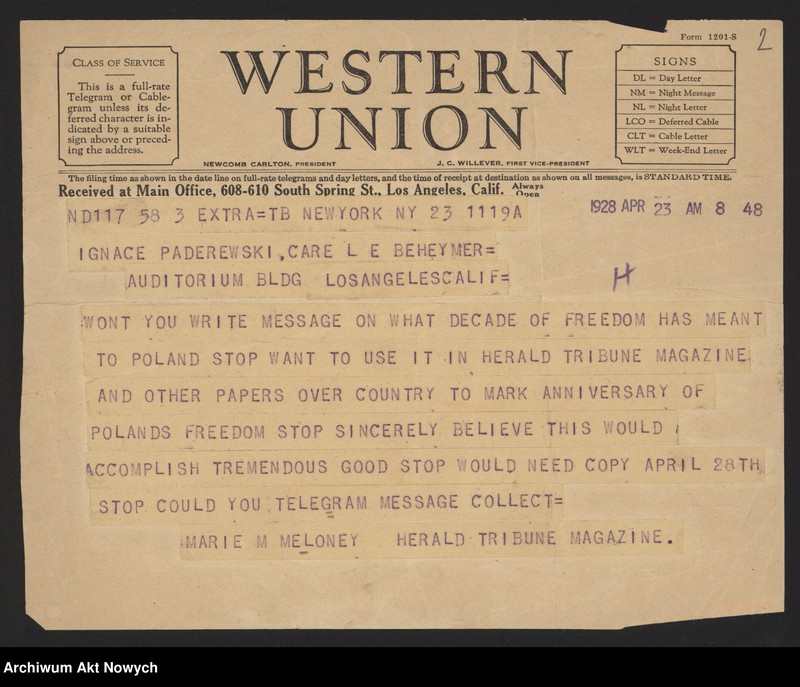 Form 1201-S
2
CLASS OF SERVICE
This is a full-rate
Telegram or Cable-
gram unless its de-
ferred character is in-
dicated by a suitable
sign above or preced-
ing the address.
WESTERN
UNION
NEWCOMB CARLTON, PRESIDENT
J. C. WILLEVER, FIRST VICE-PRESIDENT
SIGNS
DL = Day Letter
NM = Night Message
NL = Night Letter
LCO = Deferred Cable
CLT = Cable Letter
WLT = Week-End Letter
The filing time as shown in the date line on full-rate telegrams and day letters, and the time of receipt at destination as shown on all messages, is STANDARD TIME.
Received at Main Office, 608-610 South Spring St., Los Angeles, Calif. Always Open
ND117 58 3 EXTRA=TB NEWYORK NY 23 1119A
1928 APR 23 AM 8 48
IGNACE PADEREWSKI,CARE L E BEHEYMER=
AUDITORIUM BLDG LOSANGELESCALIF=
H
WONT YOU WRITE MESSAGE ON WHAT DECADE OF FREEDOM HAS MEANT
TO POLAND STOP WANT TO USE IT IN HERALD TRIBUNE MAGAZINE
AND OTHER PAPERS OVER COUNTRY TO MARK ANNIVERSARY OF
POLANDS FREEDOM STOP SINCERELY BELIEVE THIS WOULD
ACCOMPLISH TREMENDOUS GOOD STOP WOULD NEED COPY APRIL 28TH
STOP COULD YOU TELEGRAM MESSAGE COLLECT=
MARIE M MELONEY HERALD TRIBUNE MAGAZINE.
Archiwum Akt Nowych